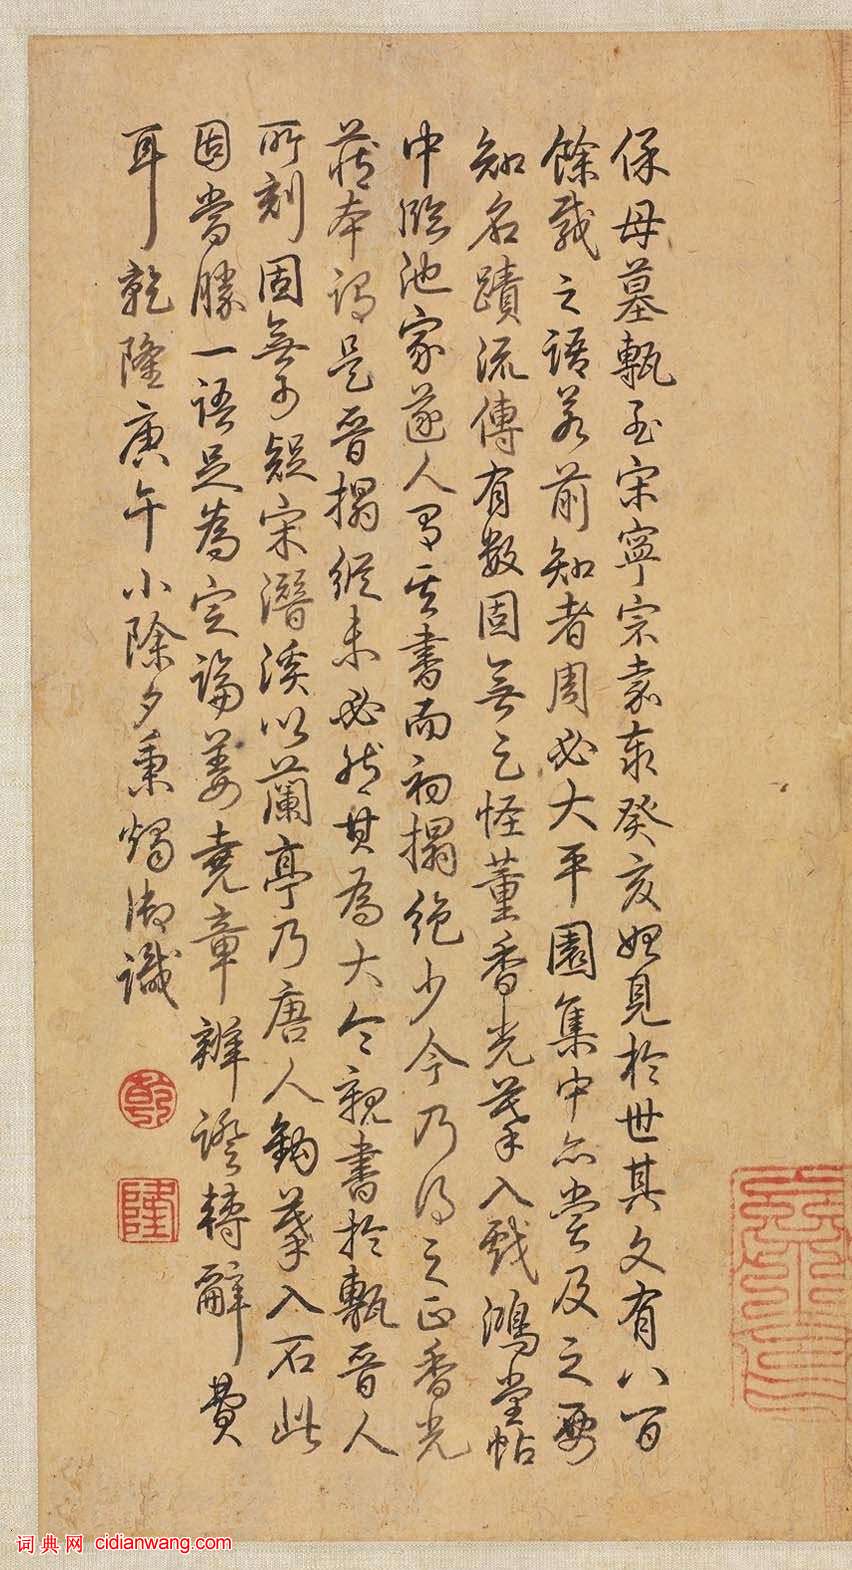 保母墓甎至宋寧宗嘉泰癸亥始見於世其文有八百
餘載之語若前知者周必大平園集中亦嘗及之要
知名蹟流傳有數固無乏怪董香光摹入戲鴻堂帖
中臨池家遂人習其書而初搨絶少今乃得之正香光
藏本謂是晉搨縱未必然其為大令親書於甎晉人
所刻固無可疑宋潛溪以蘭亭乃唐人鉤摹入石此
固當勝一語足為定論姜堯章辨證轉辭費
耳乾隆庚午小除夕秉燭御識
乾
隆
词典网 cidianwang.com